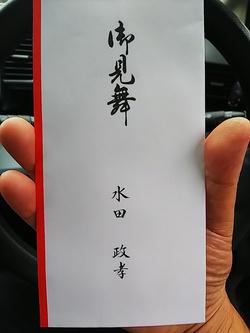 御見舞
水田 政孝